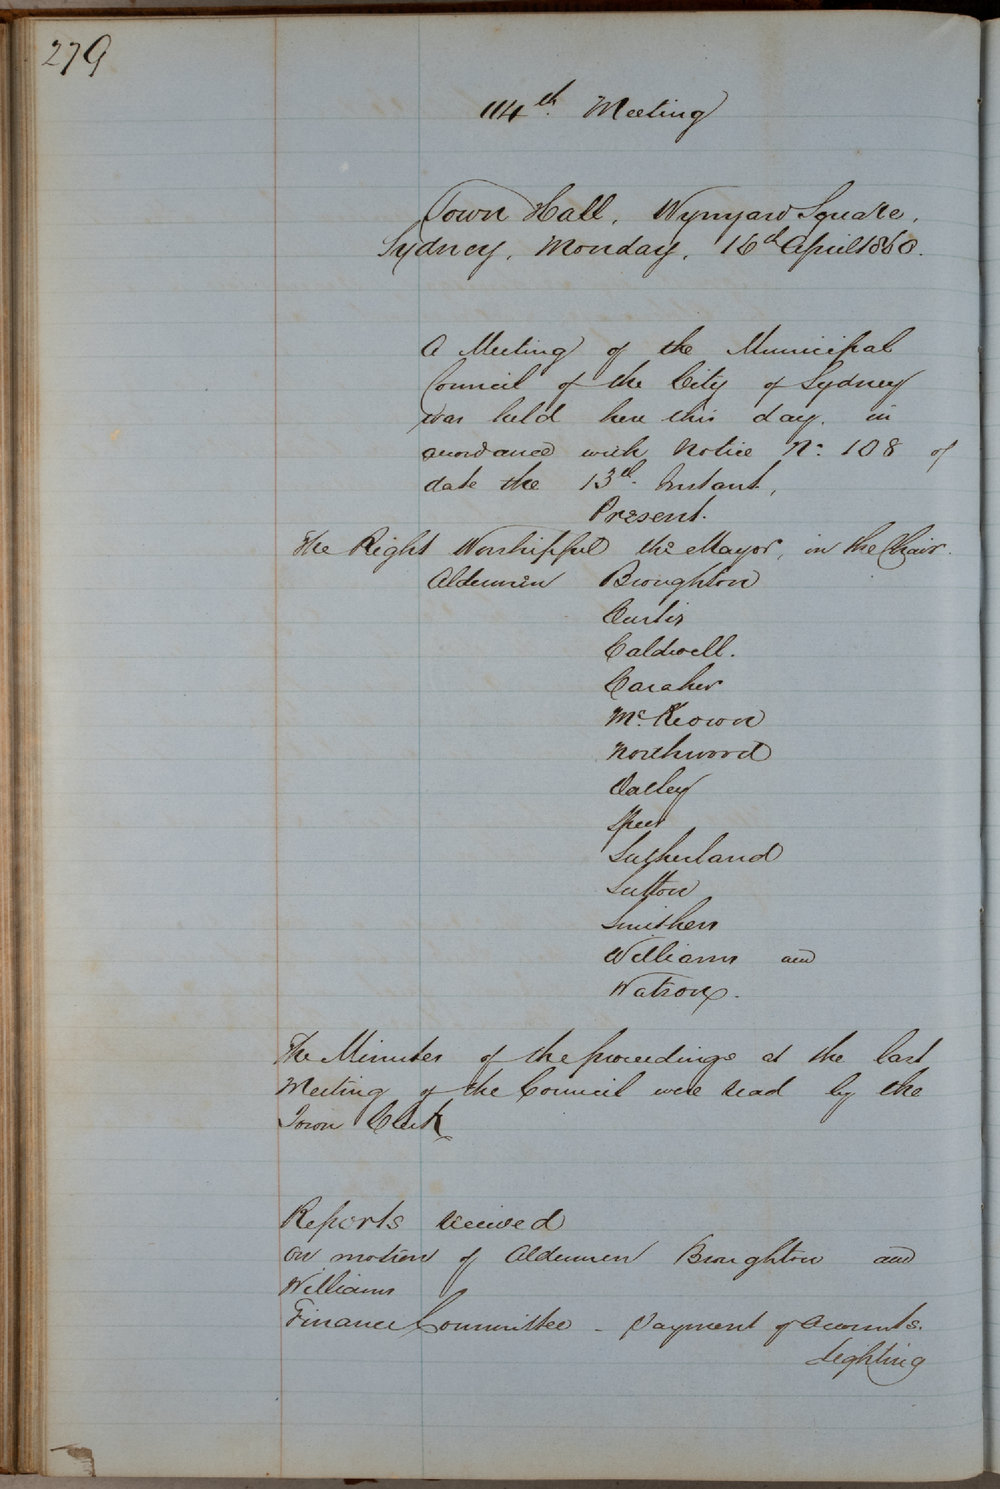 279
114th Meeting
Town Hall, Wynyard Square,
Sydney, Monday, 16th April 1860.
A Meeting of the Municipal
Council of the City of Sydney
was held here this day, in
accordance with Notice No. 108 of
date the 13th Instant,
Present.
The Right Worshipful the Mayor, in the Chair.
Aldermen Broughton
Curtis
Caldwell.
Caraher
McKeown
Northwood
Oatley
Speer
Sutherland
Sutton
Smithers
Williams and
Watson.
The Minutes of the proceedings at the last
Meeting of the Council were read by the
Town Clerk
Reports received
on motion of Aldermen Broughton and
Williams
Finance Committee - Payment of Accounts.
Lighting